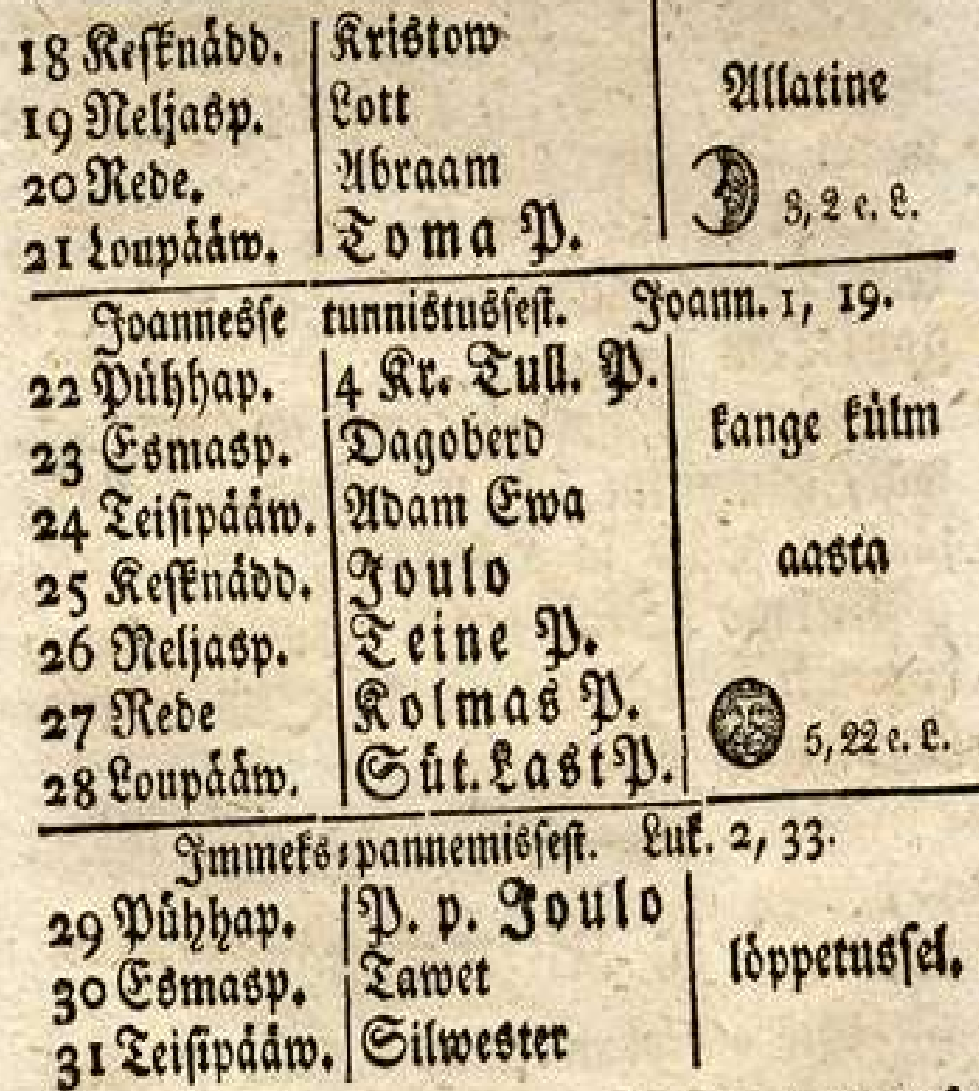 18 Kesknädd. Kristow
Allatine
19 Neljasp. Lott
20 Rede. Abraam
3, 2 e. L.
21 Loupääw. Toma P.
Joannesse tunnistussest. Joann. 1, 19.
22 Pühhap. 4 Kr. Tull. P.
kange külm
23 Esmasp. Dagoberd
24 Teisipääw. Adam Ewa
aasta
25 Kesknädd. Joulo
26 Neljasp. Teine P.
27 Rede Kolmas P.
5, 22 e. L.
28 Loupääw. Süt. Last P.
Immeks-pannemissest. Luk. 2, 33.
29 Pühhap. P. p. Joulo
löppetussel.
30 Esmasp. Tawet
31 Teisipääw. Silwester